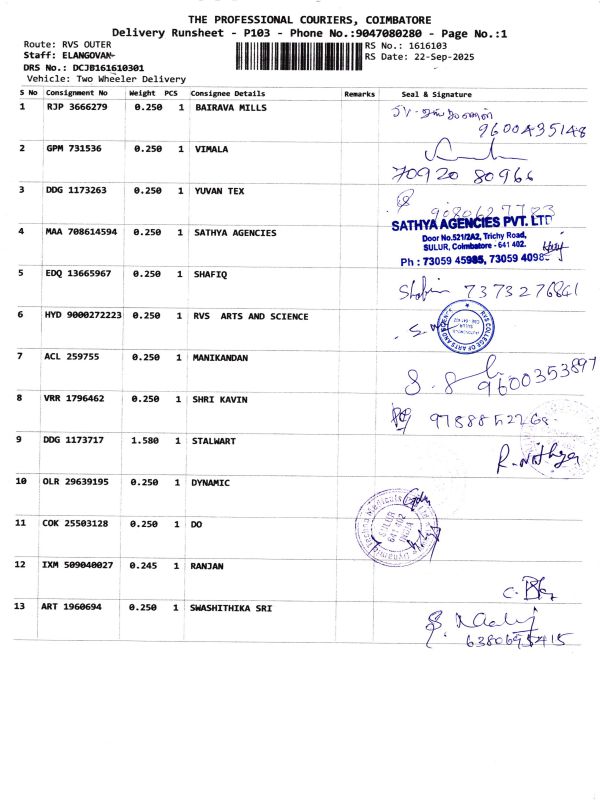 THE PROFESSIONAL COURIERS, COIMBATORE
Delivery Runsheet - P103 - Phone No.:9047080280 - Page No.:1
Route: RVS OUTER RS No.: 1616103
Staff: ELANGOVAN- RS Date: 22-Sep-2025
DRS No.: DCJB161610301
Vehicle: Two Wheeler Delivery
S No Consignment No Weight PCS Consignee Details Remarks Seal & Signature
1 RJP 3666279 0.250 1 BAIRAVA MILLS
9600435148
2 GPM 731536 0.250 1 VIMALA
70920 80966
3 DDG 1173263 0.250 1 YUVAN TEX
9080627723
4 MAA 708614594 0.250 1 SATHYA AGENCIES
SATHYA AGENCIES PVT. LTD
Door No.521/2A2, Trichy Road,
SULUR, Coimbatore - 641 402.
Ph : 73059 45985, 73059 4098
5 EDQ 13665967 0.250 1 SHAFIQ
7373276841
6 HYD 9000272223 0.250 1 RVS ARTS AND SCIENCE
RVS COLLEGE OF ARTS AND SCIENCE
SULUR
7 ACL 259755 0.250 1 MANIKANDAN
9600353897
8 VRR 1796462 0.250 1 SHRI KAVIN
9 DDG 1173717 1.580 1 STALWART
R. Nithya
10 OLR 29639195 0.250 1 DYNAMIC
SULUR
641 402
INDIA
11 COK 25503128 0.250 1 DO
12 IXM 509040027 0.245 1 RANJAN
13 ART 1960694 0.250 1 SWASHITHIKA SRI
6380695415